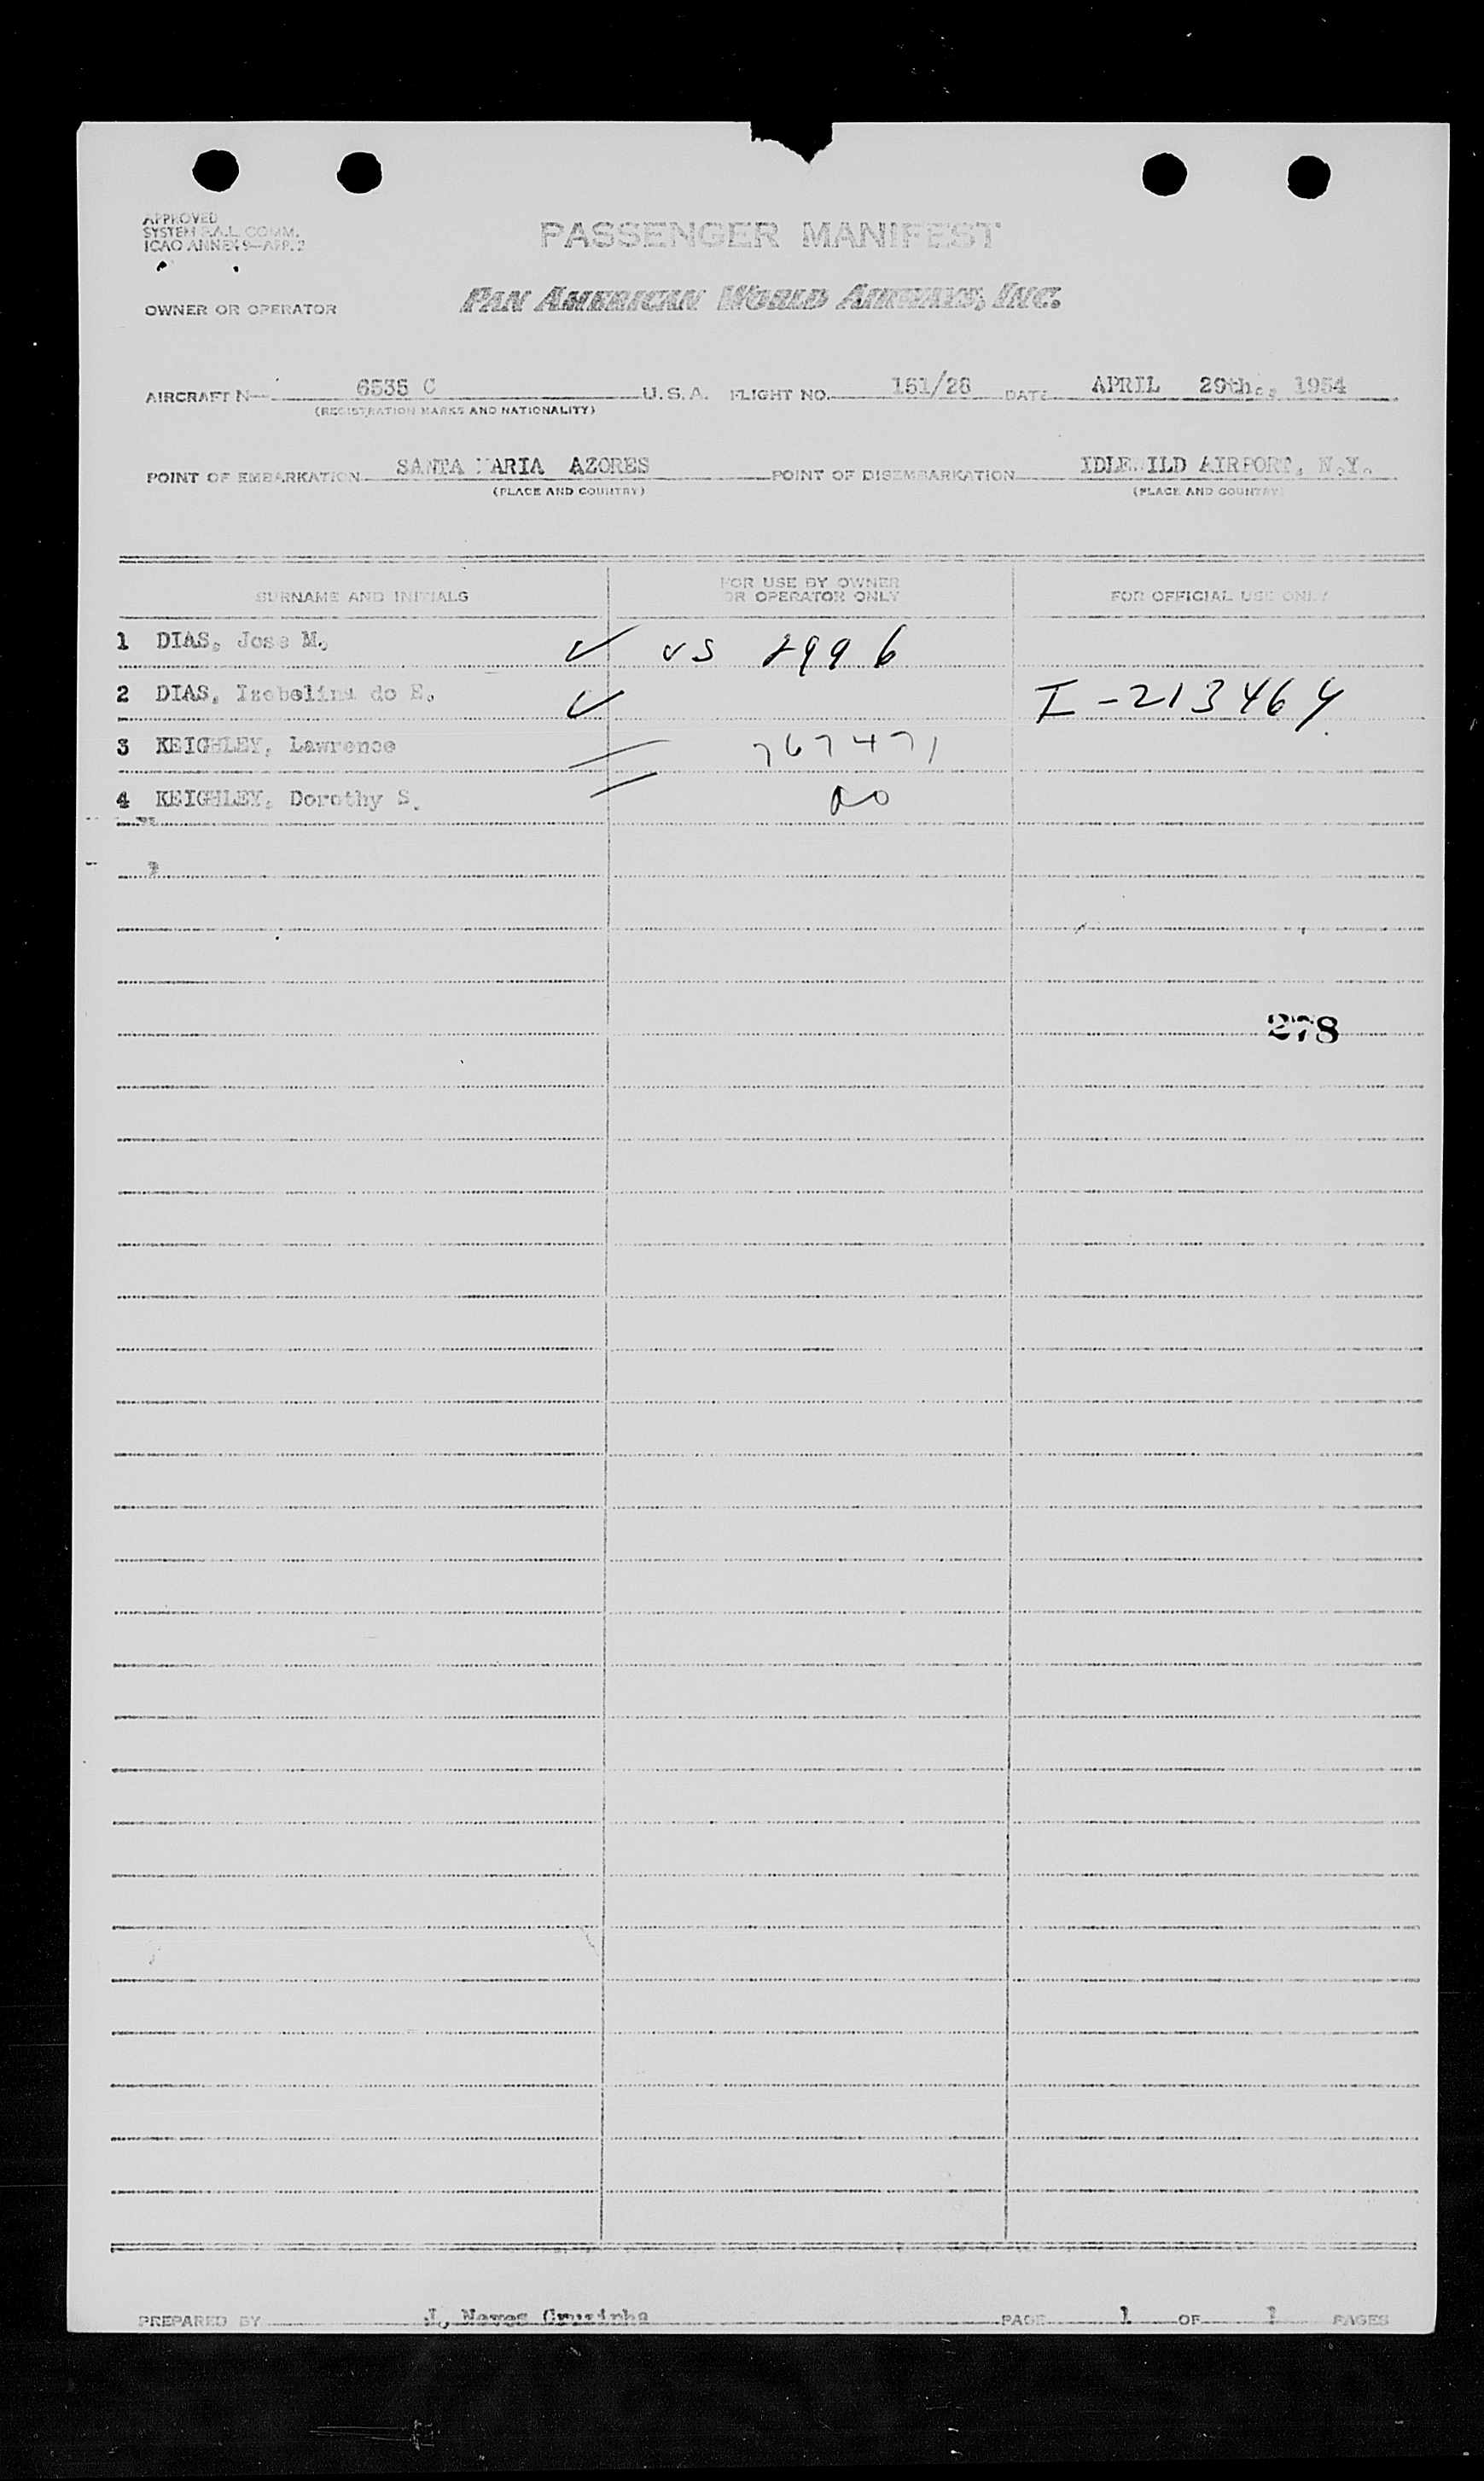 APPROVED
SYSTEM F.A.L. COMM.
ICAO ANNEX 9—APP. 2
PASSENGER MANIFEST
OWNER OR OPERATOR PAN AMERICAN WORLD AIRWAYS, INC.
AIRCRAFT N— 6535 C U.S.A. FLIGHT NO. 151/28 DATE APRIL 29th., 1954
(REGISTRATION MARKS AND NATIONALITY)
POINT OF EMBARKATION SANTA MARIA AZORES POINT OF DISEMBARKATION IDLEWILD AIRPORT, N.Y.
(PLACE AND COUNTRY) (PLACE AND COUNTRY)
SURNAME AND INITIALS FOR USE BY OWNER OR OPERATOR ONLY FOR OFFICIAL USE ONLY
1 DIAS, Jose M. ✓ VS 8996
2 DIAS, Izabelina do E. ✓ I-213464
3 KEIGHLEY, Lawrence 767471
4 KEIGHLEY, Dorothy S.
278
PREPARED BY J. Neves PAGE 1 OF 1 PAGES